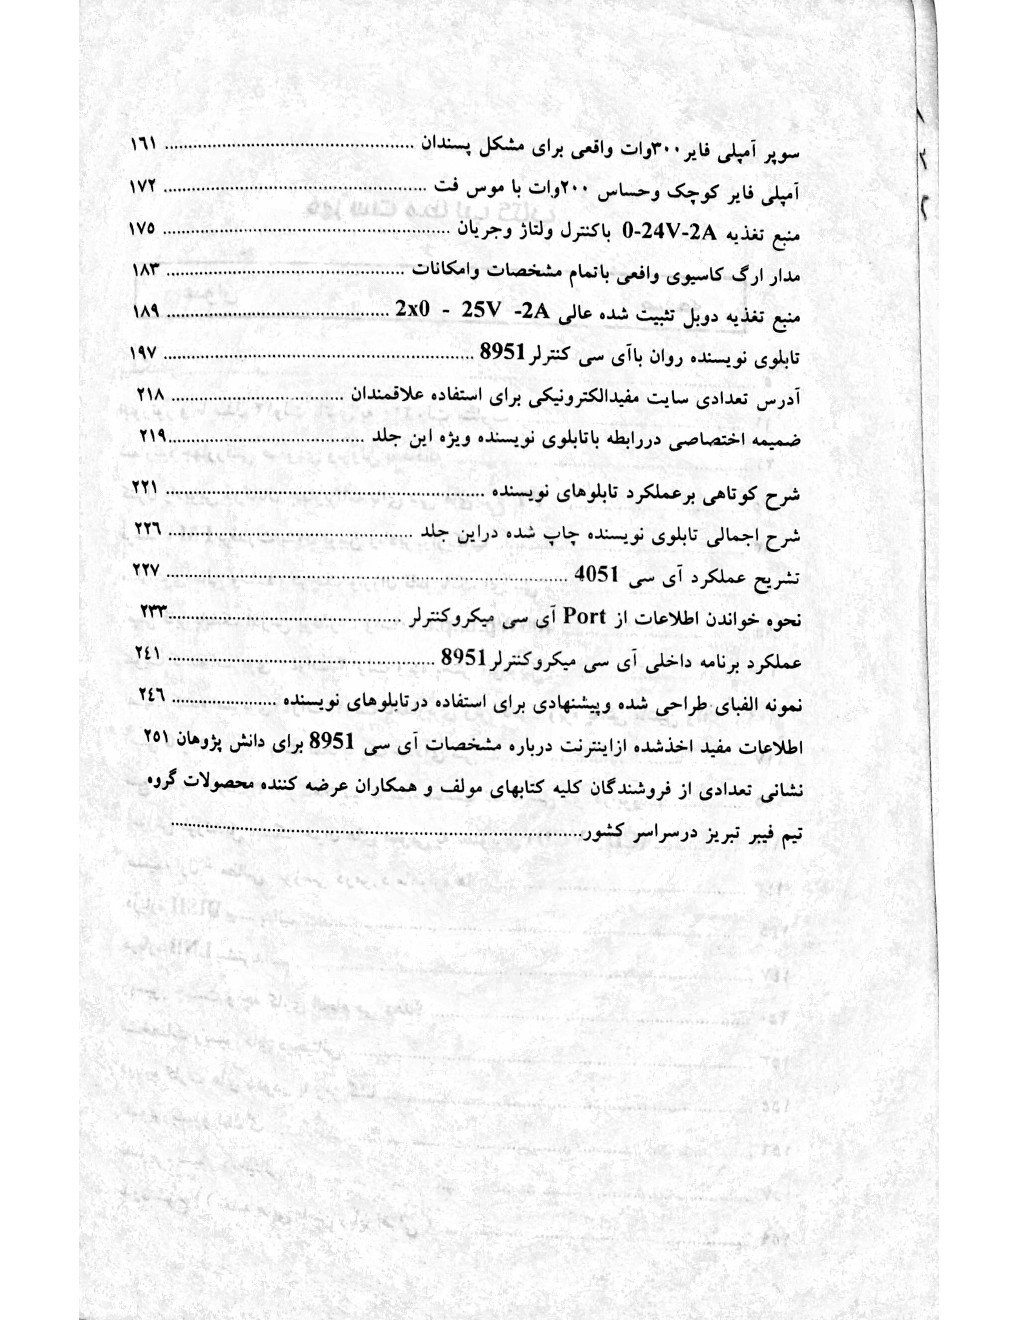 سوپر آمپلی فایر ۳۰۰وات واقعی برای مشکل پسندان ........................................ ۱٦۱
آمپلی فایر کوچک وحساس ۲۰۰وات با موس فت ........................................ ۱۷۲
منبع تغذیه 0-24V-2A باکنترل ولتاژ وجریان ........................................ ۱۷۵
مدار ارگ کاسیوی واقعی باتمام مشخصات وامکانات ........................................ ۱۸۳
منبع تغذیه دوبل تثبیت شده عالی 2x0 - 25V -2A ........................................ ۱۸۹
تابلوی نویسنده روان باآی سی کنترلر8951 ........................................ ۱۹۷
آدرس تعدادی سایت مفیدالکترونیکی برای استفاده علاقمندان .............................. ۲۱۸
ضمیمه اختصاصی دررابطه باتابلوی نویسنده ویژه این جلد ..............................۲۱۹
شرح کوتاهی برعملکرد تابلوهای نویسنده ........................................ ۲۲۱
شرح اجمالی تابلوی نویسنده چاپ شده دراین جلد ........................................ ۲۲٦
تشریح عملکرد آی سی 4051 ........................................ ۲۲۷
نحوه خواندن اطلاعات از Port آی سی میکروکنترلر ........................................۲۳۳
عملکرد برنامه داخلی آی سی میکروکنترلر8951 ........................................ ۲٤۱
نمونه الفبای طراحی شده وپیشنهادی برای استفاده درتابلوهای نویسنده ...................... ۲٤٦
اطلاعات مفید اخذشده ازاینترنت درباره مشخصات آی سی 8951 برای دانش پژوهان ۲۵۱
نشانی تعدادی از فروشندگان کلیه کتابهای مولف و همکاران عرضه کننده محصولات گروه
تیم فیبر تبریز درسراسر کشور........................................